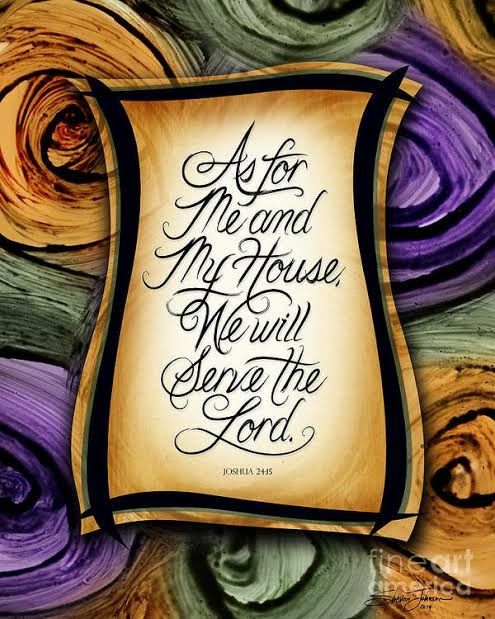 As for
Me and
My House,
We will
Serve the
Lord.
JOSHUA 24:15
fineart
america
2014